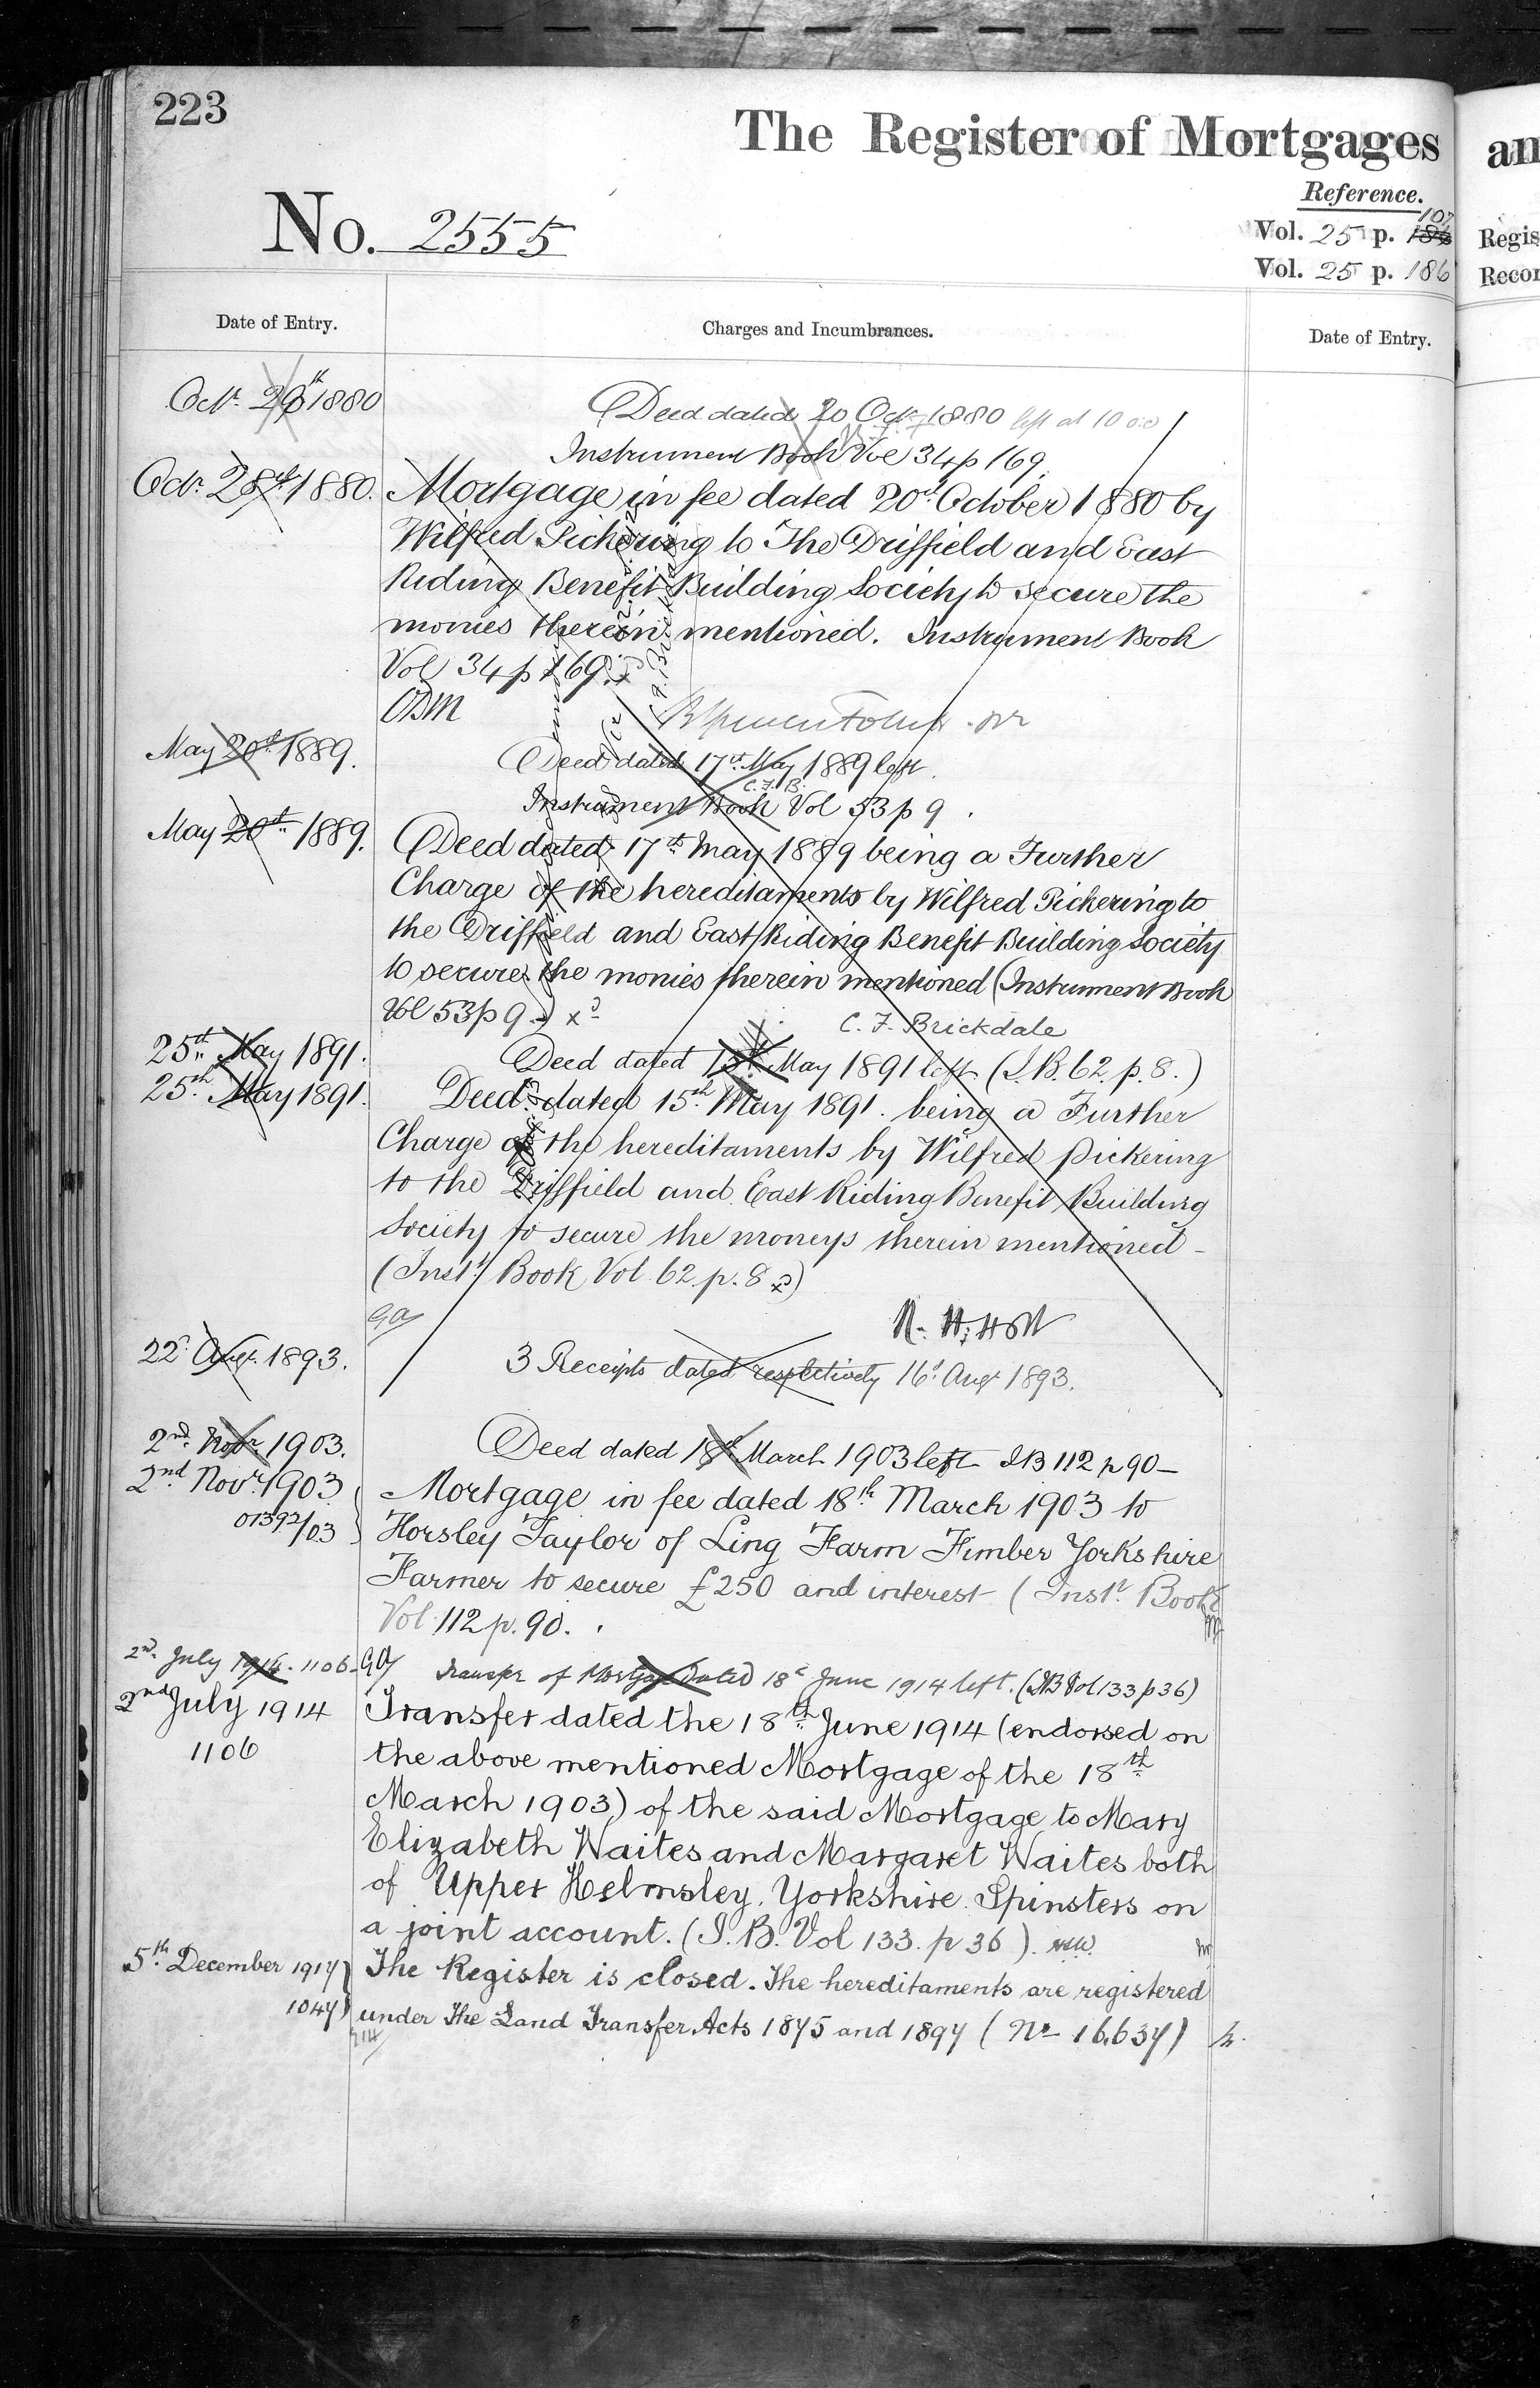 223
The Register of Mortgages
an
Reference.
No. 2555
107
Vol. 25 p. 186
Regis
Vol. 25 p. 186
Recor
Date of Entry.
Charges and Incumbrances.
Date of Entry.
Octr. 20th 1880
Deed dated 20 Octr. 1880 left at 10 o.c
Instrument Book Vol 34 p 169
Octr. 28th 1880.
Mortgage in fee dated 20th October 1880 by
Wilfred Pickering to The Driffield and East
Riding Benefit Building Society to secure the
monies therein mentioned. Instrument Book
Vol 34 p 169. xd
May 20th 1889.
Deed dated 17th May 1889 left.
C.F.B.
Instrument Book Vol 53 p 9.
May 20th 1889.
Deed dated 17th May 1889 being a Further
Charge of the hereditaments by Wilfred Pickering to
the Driffield and East Riding Benefit Building Society
to secure the monies therein mentioned (Instrument Book
Vol 53 p 9.) xd
C. F. Brickdale
25th May 1891.
Deed dated 15th May 1891 left. (I.B. 62. p. 8.)
25th May 1891.
Deed dated 15th May 1891. being a Further
Charge of the hereditaments by Wilfred Pickering
to the Driffield and East Riding Benefit Building
Society to secure the moneys therein mentioned -
(Instt. Book Vol. 62 p. 8 xd)
GA
22d Augt. 1893.
3 Receipts dated respectively 16th Augt 1893.
2nd. Novr. 1903.
Deed dated 18th March 1903 left IB 112 p 90 -
2nd Novr. 1903
01392/03
Mortgage in fee dated 18th March 1903 to
Horsley Taylor of Ling Farm Fimber Yorkshire
Farmer to secure £250 and interest (Instt. Book
Vol. 112 p. 90.
2nd. July 1914. 1106
GA
Transfer of Mortgage dated 18th June 1914 left. (IB Vol 133 p 36)
2nd July 1914
1106
Transfer dated the 18th June 1914 (endorsed on
the above mentioned Mortgage of the 18th
March 1903) of the said Mortgage to Mary
Elizabeth Waites and Margaret Waites both
of Upper Helmsley, Yorkshire. Spinsters on
a joint account. (I.B. Vol 133. p 36).
5th December 1917
1047
The Register is closed. The hereditaments are registered
under The Land Transfer Acts 1875 and 1897 (No 16,637)